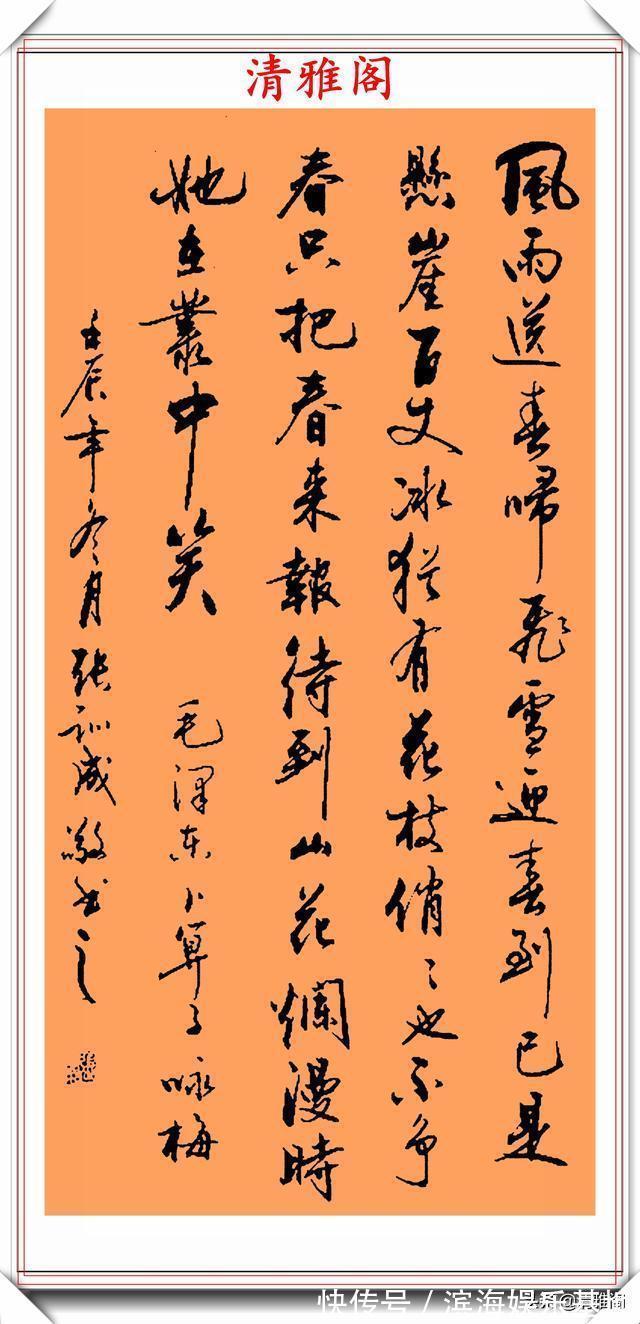 清雅阁
風雨送春歸飛雪迎春到已是
懸崖百丈冰猶有花枝俏〻也不争
春只把春来報待到山花爛漫時
她在叢中笑 毛澤东卜算子咏梅
壬辰年冬月张训成敬书之
快传号 / 滨海娱乐基
@清雅阁